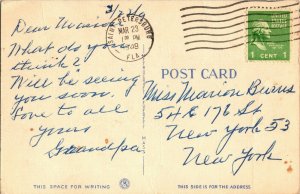 3/22/49
Dear Marion
What do you
think?
Will be seeing
you soon.
Love to all
Yours
Grandpa
SAINT PETERSBURG
MAR 23
PM
FLA.
1 CENT 1
POST CARD
Miss Marion Burns
54 E 176 St
New York 53
New York
THIS SPACE FOR WRITING
THIS SIDE IS FOR THE ADDRESS